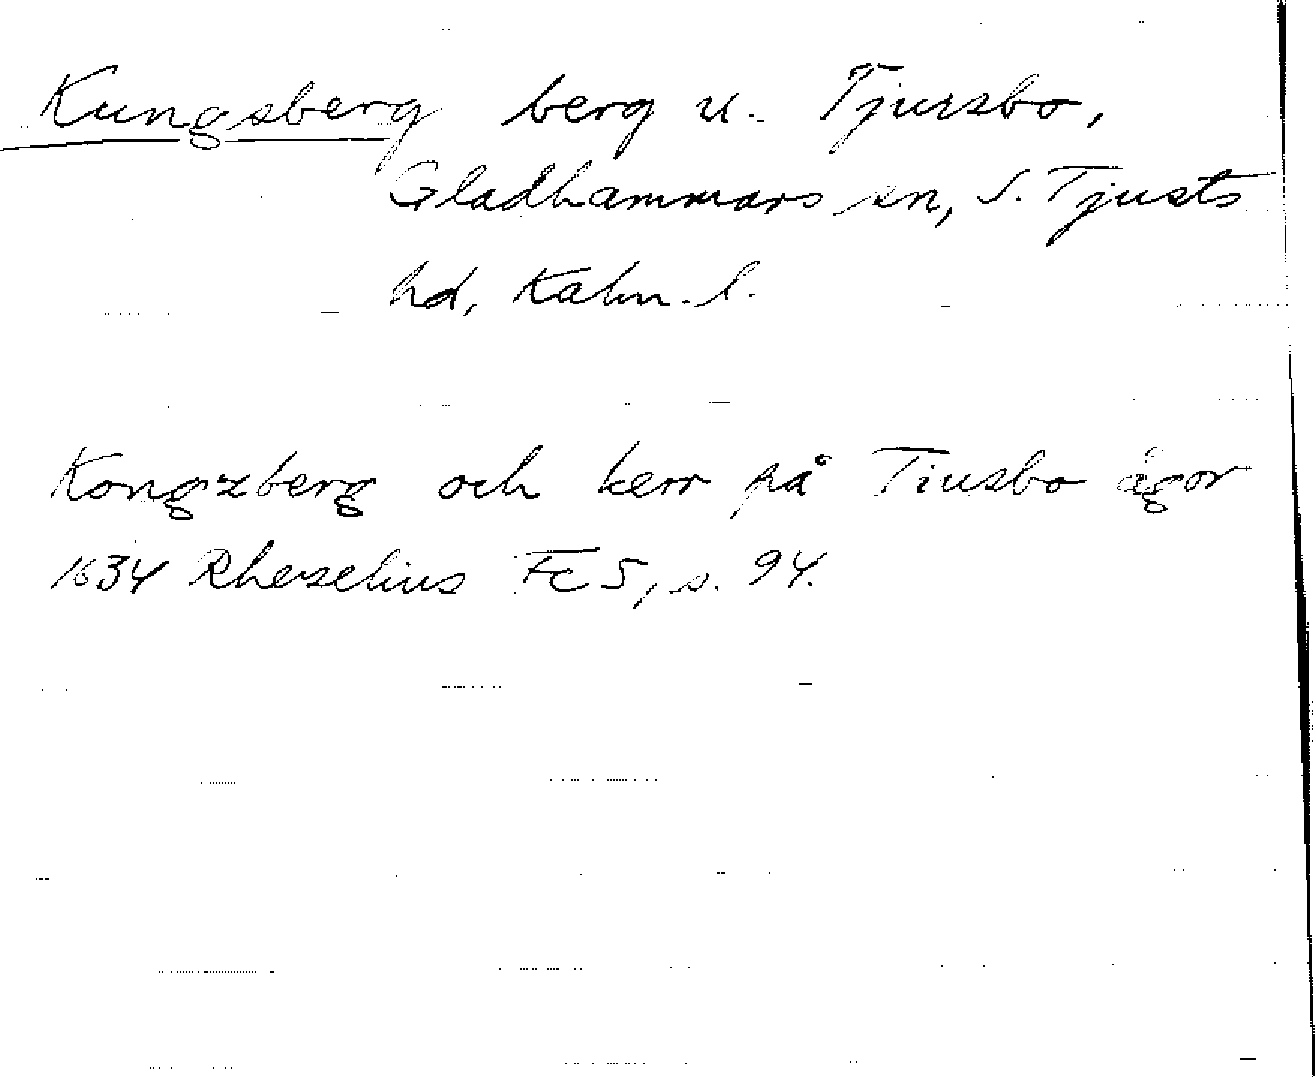 Kungsberg berg u. Tjursbo,
Gladhammars sn, S. Tjusts
hd, Kalm. l.
Kongzberg och kerr på Tiusbo ägor
1634 Rhezelius Fc 5, s. 94.